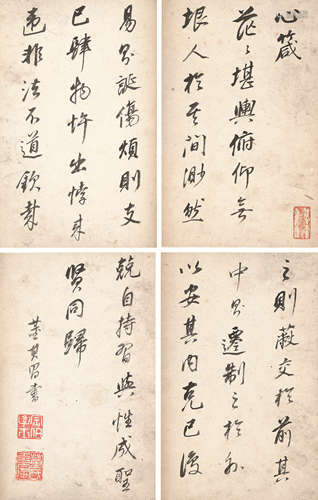 心箴
茫茫堪輿俯仰無
垠人於其間渺然
易則誕傷煩則支
己肆物忤出悖來
違非法不道欽哉
之則蔽交於前其
中則遷制之於外
以安其內克己復
兢自持習與性成聖
賢同歸
董其昌書